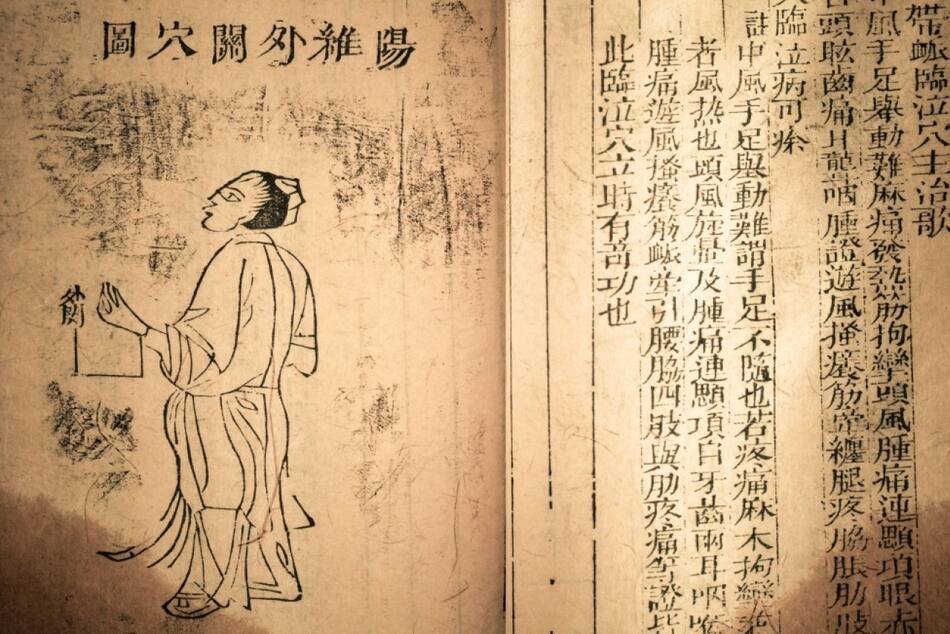 陽維外關穴圖
外關
帶脈臨泣穴主治歌
中風手足舉動難麻痛發熱筋拘攣頭風腫痛連顋項眼赤
頭眩齒痛耳聾咽腫證遊風搔癢筋牽纏腿疼脇脹肋肢
臨泣病可痊
註中風手足舉動難謂手足不隨也若疼痛麻木拘攣
者風熱也頭風旋暈及腫痛連顋項目牙齒兩耳咽喉
腫痛遊風搔癢筋脈牽引腰脇四肢與肋疼痛等證
此臨泣穴立時有奇功也